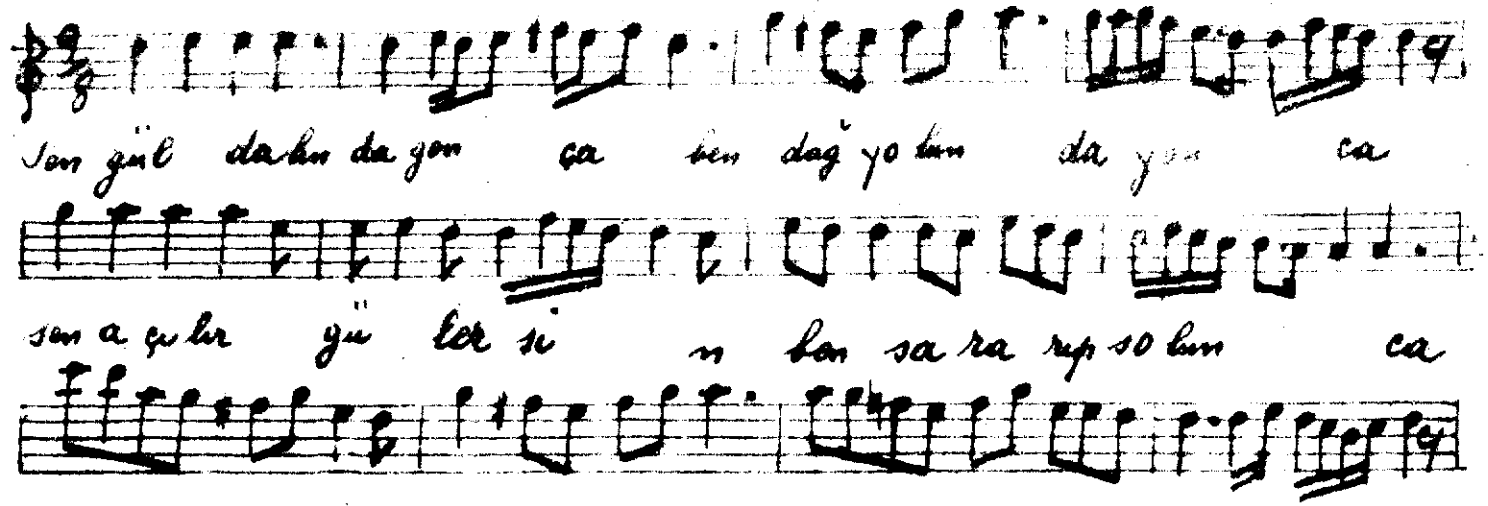 Sen gül dalın da gon ça ben dağ yo lun da yon ca
sen a çı lır gü ler si n ben sa ra rıp so lun ca